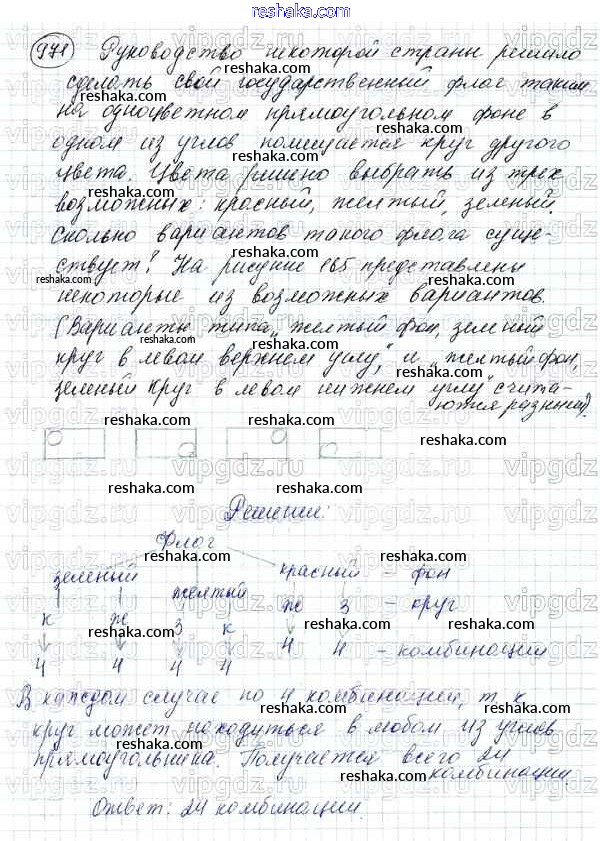 971 Руководство некоторой страны решило
сделать свой государственный флаг таким
на одноцветном прямоугольном фоне в
одном из углов помещается круг другого
цвета. Цвета решено выбрать из трех
возможных: красный, желтый, зеленый.
Сколько вариантов такого флага суще-
ствует? На рисунке 165 представлены
некоторые из возможных вариантов.
(Варианты типа „желтый фон, зеленый
круг в левом верхнем углу" и „желтый фон,
зеленый круг в левом нижнем углу" счита-
ются разными).
Решение:
Флаг
зеленый желтый красный – фон
к ж з к ж з – круг
4 4 4 4 4 4 – комбинации
В каждом случае по 4 комбинации, т. к
круг может находиться в любом из углов
прямоугольника. Получается всего 24
комбинации.
Ответ: 24 комбинации.
reshaka.com
vipgdz.ru